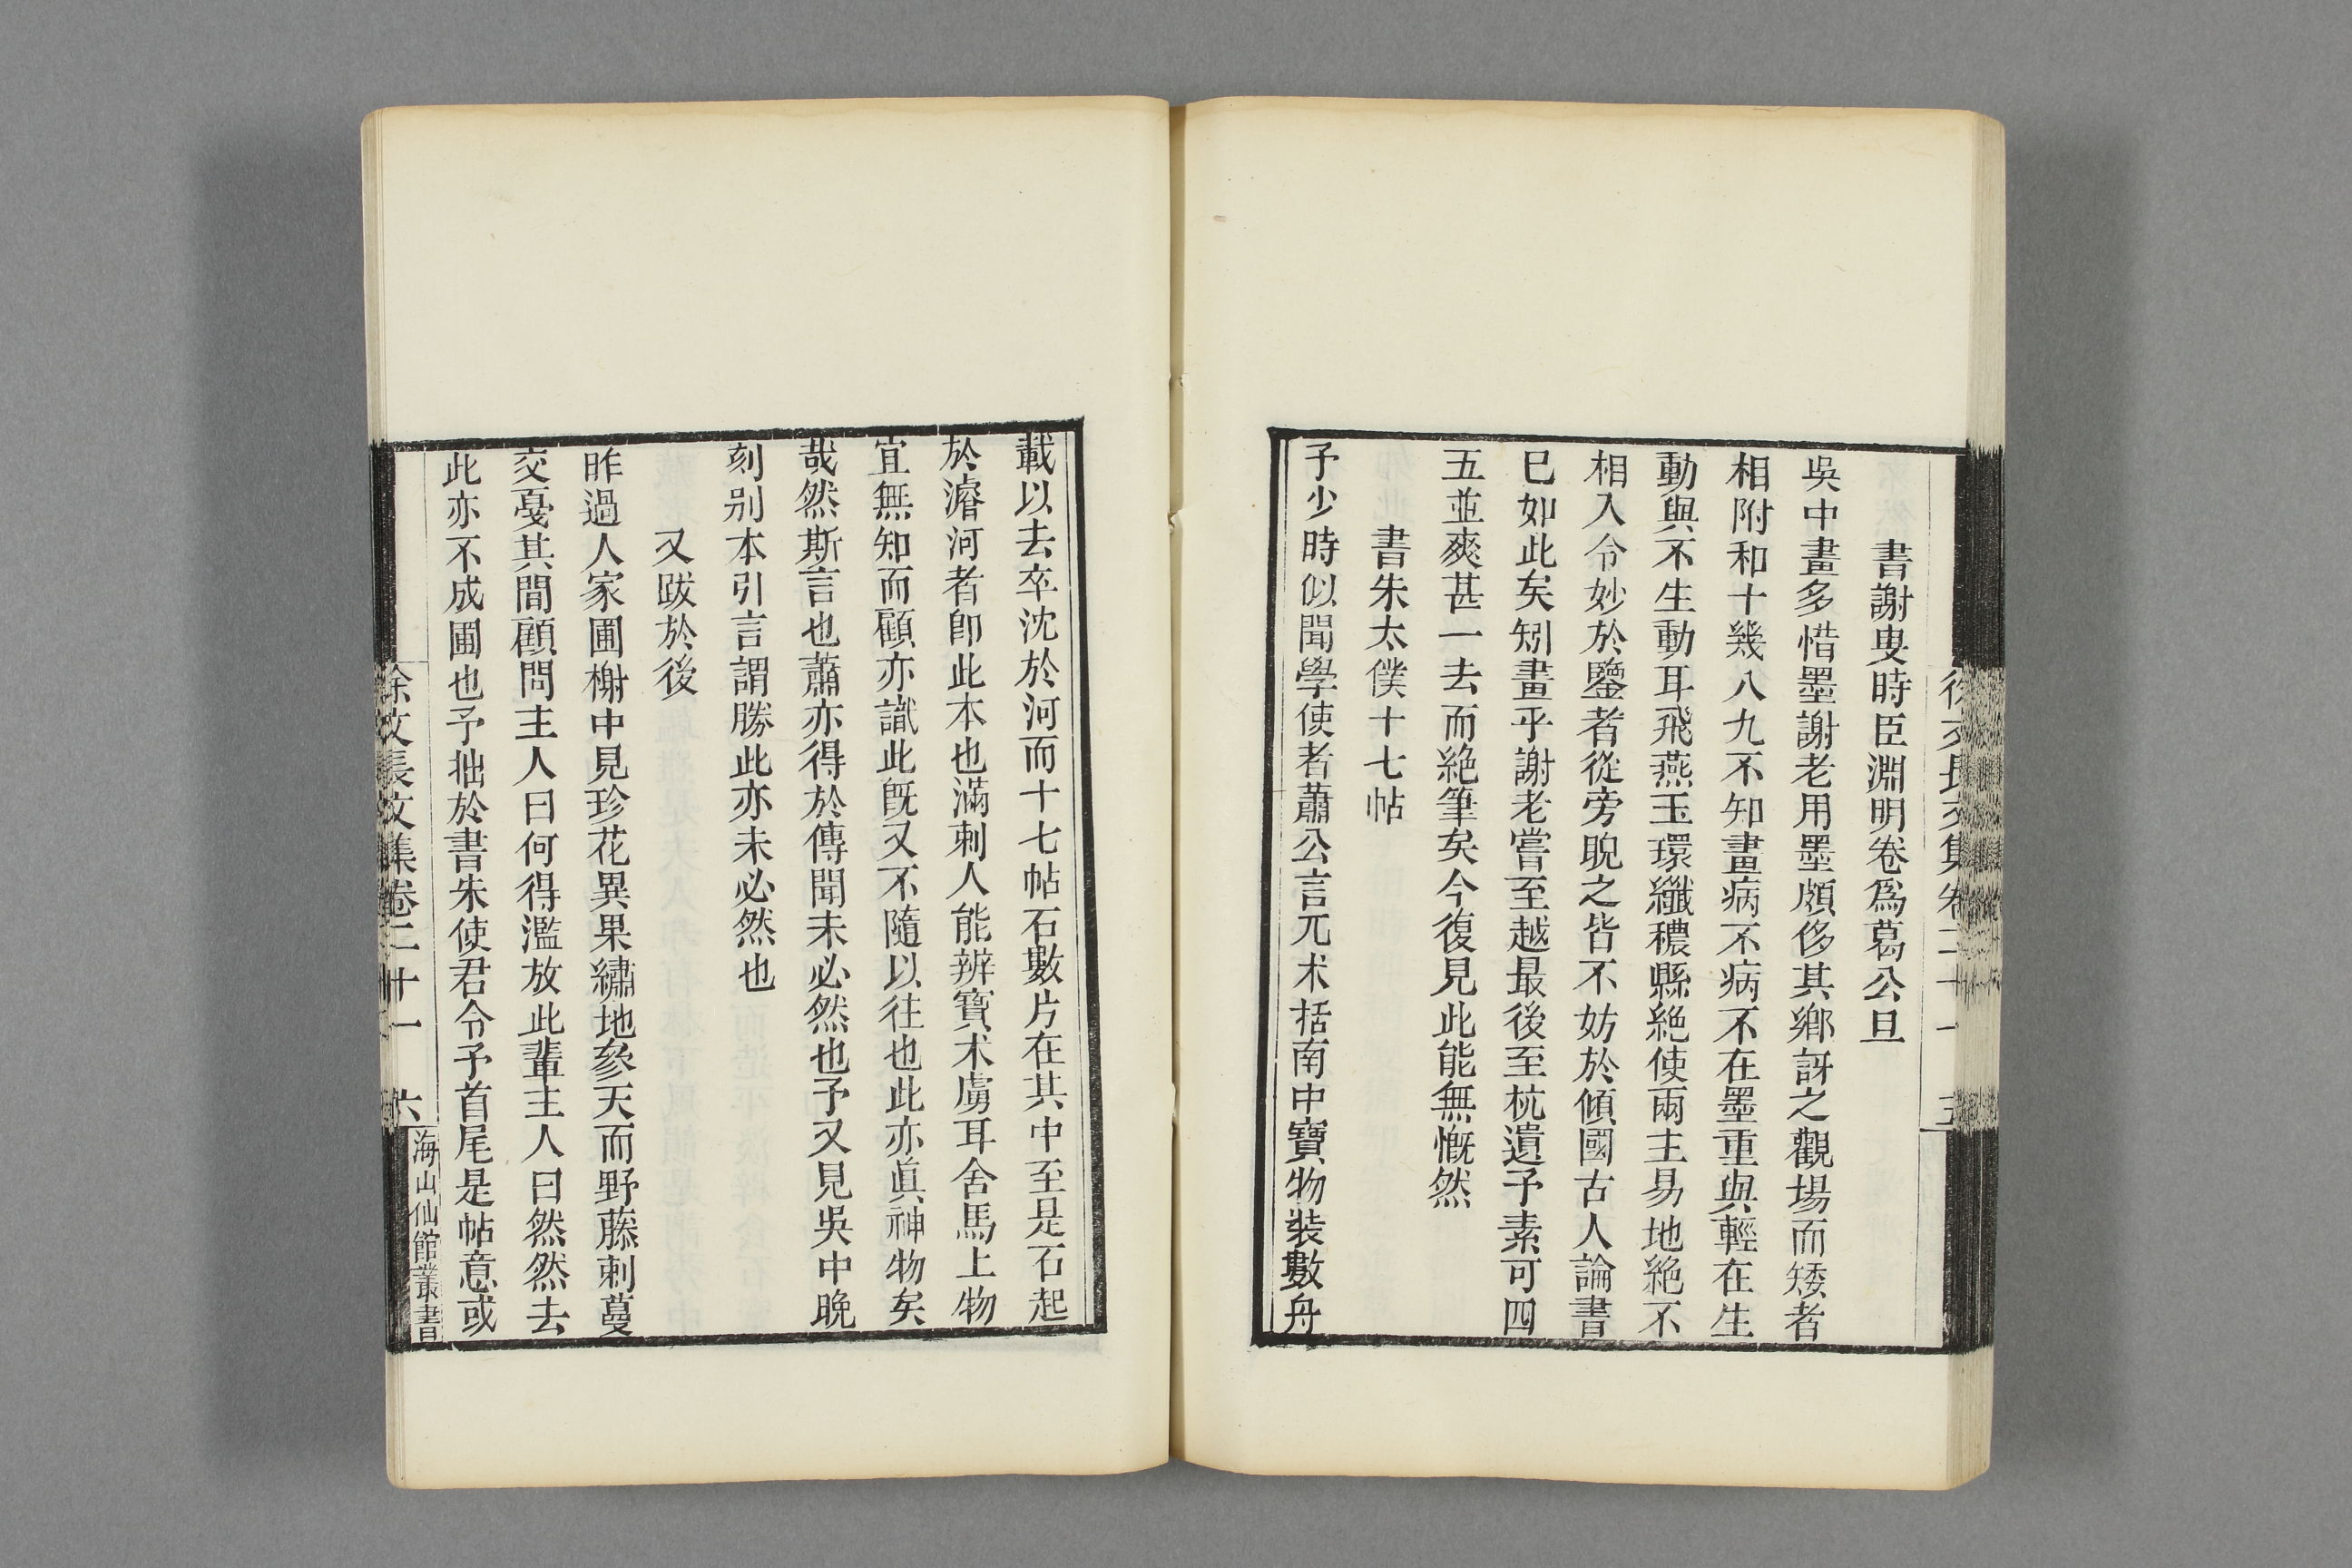 書謝叟時臣淵明卷爲葛公旦
吳中畫多惜墨謝老用墨頗侈其鄉訝之觀場而矮者
相附和十幾八九不知畫病不病不在墨重與輕在生
動與不生動耳飛燕玉環纖穠縣絕使兩主易地絕不
相入令妙於鑒者從旁睨之皆不妨於傾國古人論書
已如此矣矧畫乎謝老嘗至越最後至杭遺予素可四
五並爽甚一去而絕筆矣今復見此能無慨然
書朱太僕十七帖
予少時似聞學使者蕭公言兀朮括南中寶物裝數舟
載以去卒沈於河而十七帖石數片在其中至是石起
於濬河者卽此本也滿剌人能辨寶朮虜耳舍馬上物
宜無知而顧亦識此旣又不隨以往也此亦眞神物矣
哉然斯言也蕭亦得於傳聞未必然也予又見吳中晚
刻别本引言謂勝此亦未必然也
又跋於後
昨過人家圃榭中見珍花異果繡地參天而野藤刺蔓
交戞其間顧問主人曰何得濫放此輩主人曰然然去
此亦不成圃也予拙於書朱使君令予首尾是帖意或
徐文長文集卷二十一 六
海山仙館叢書